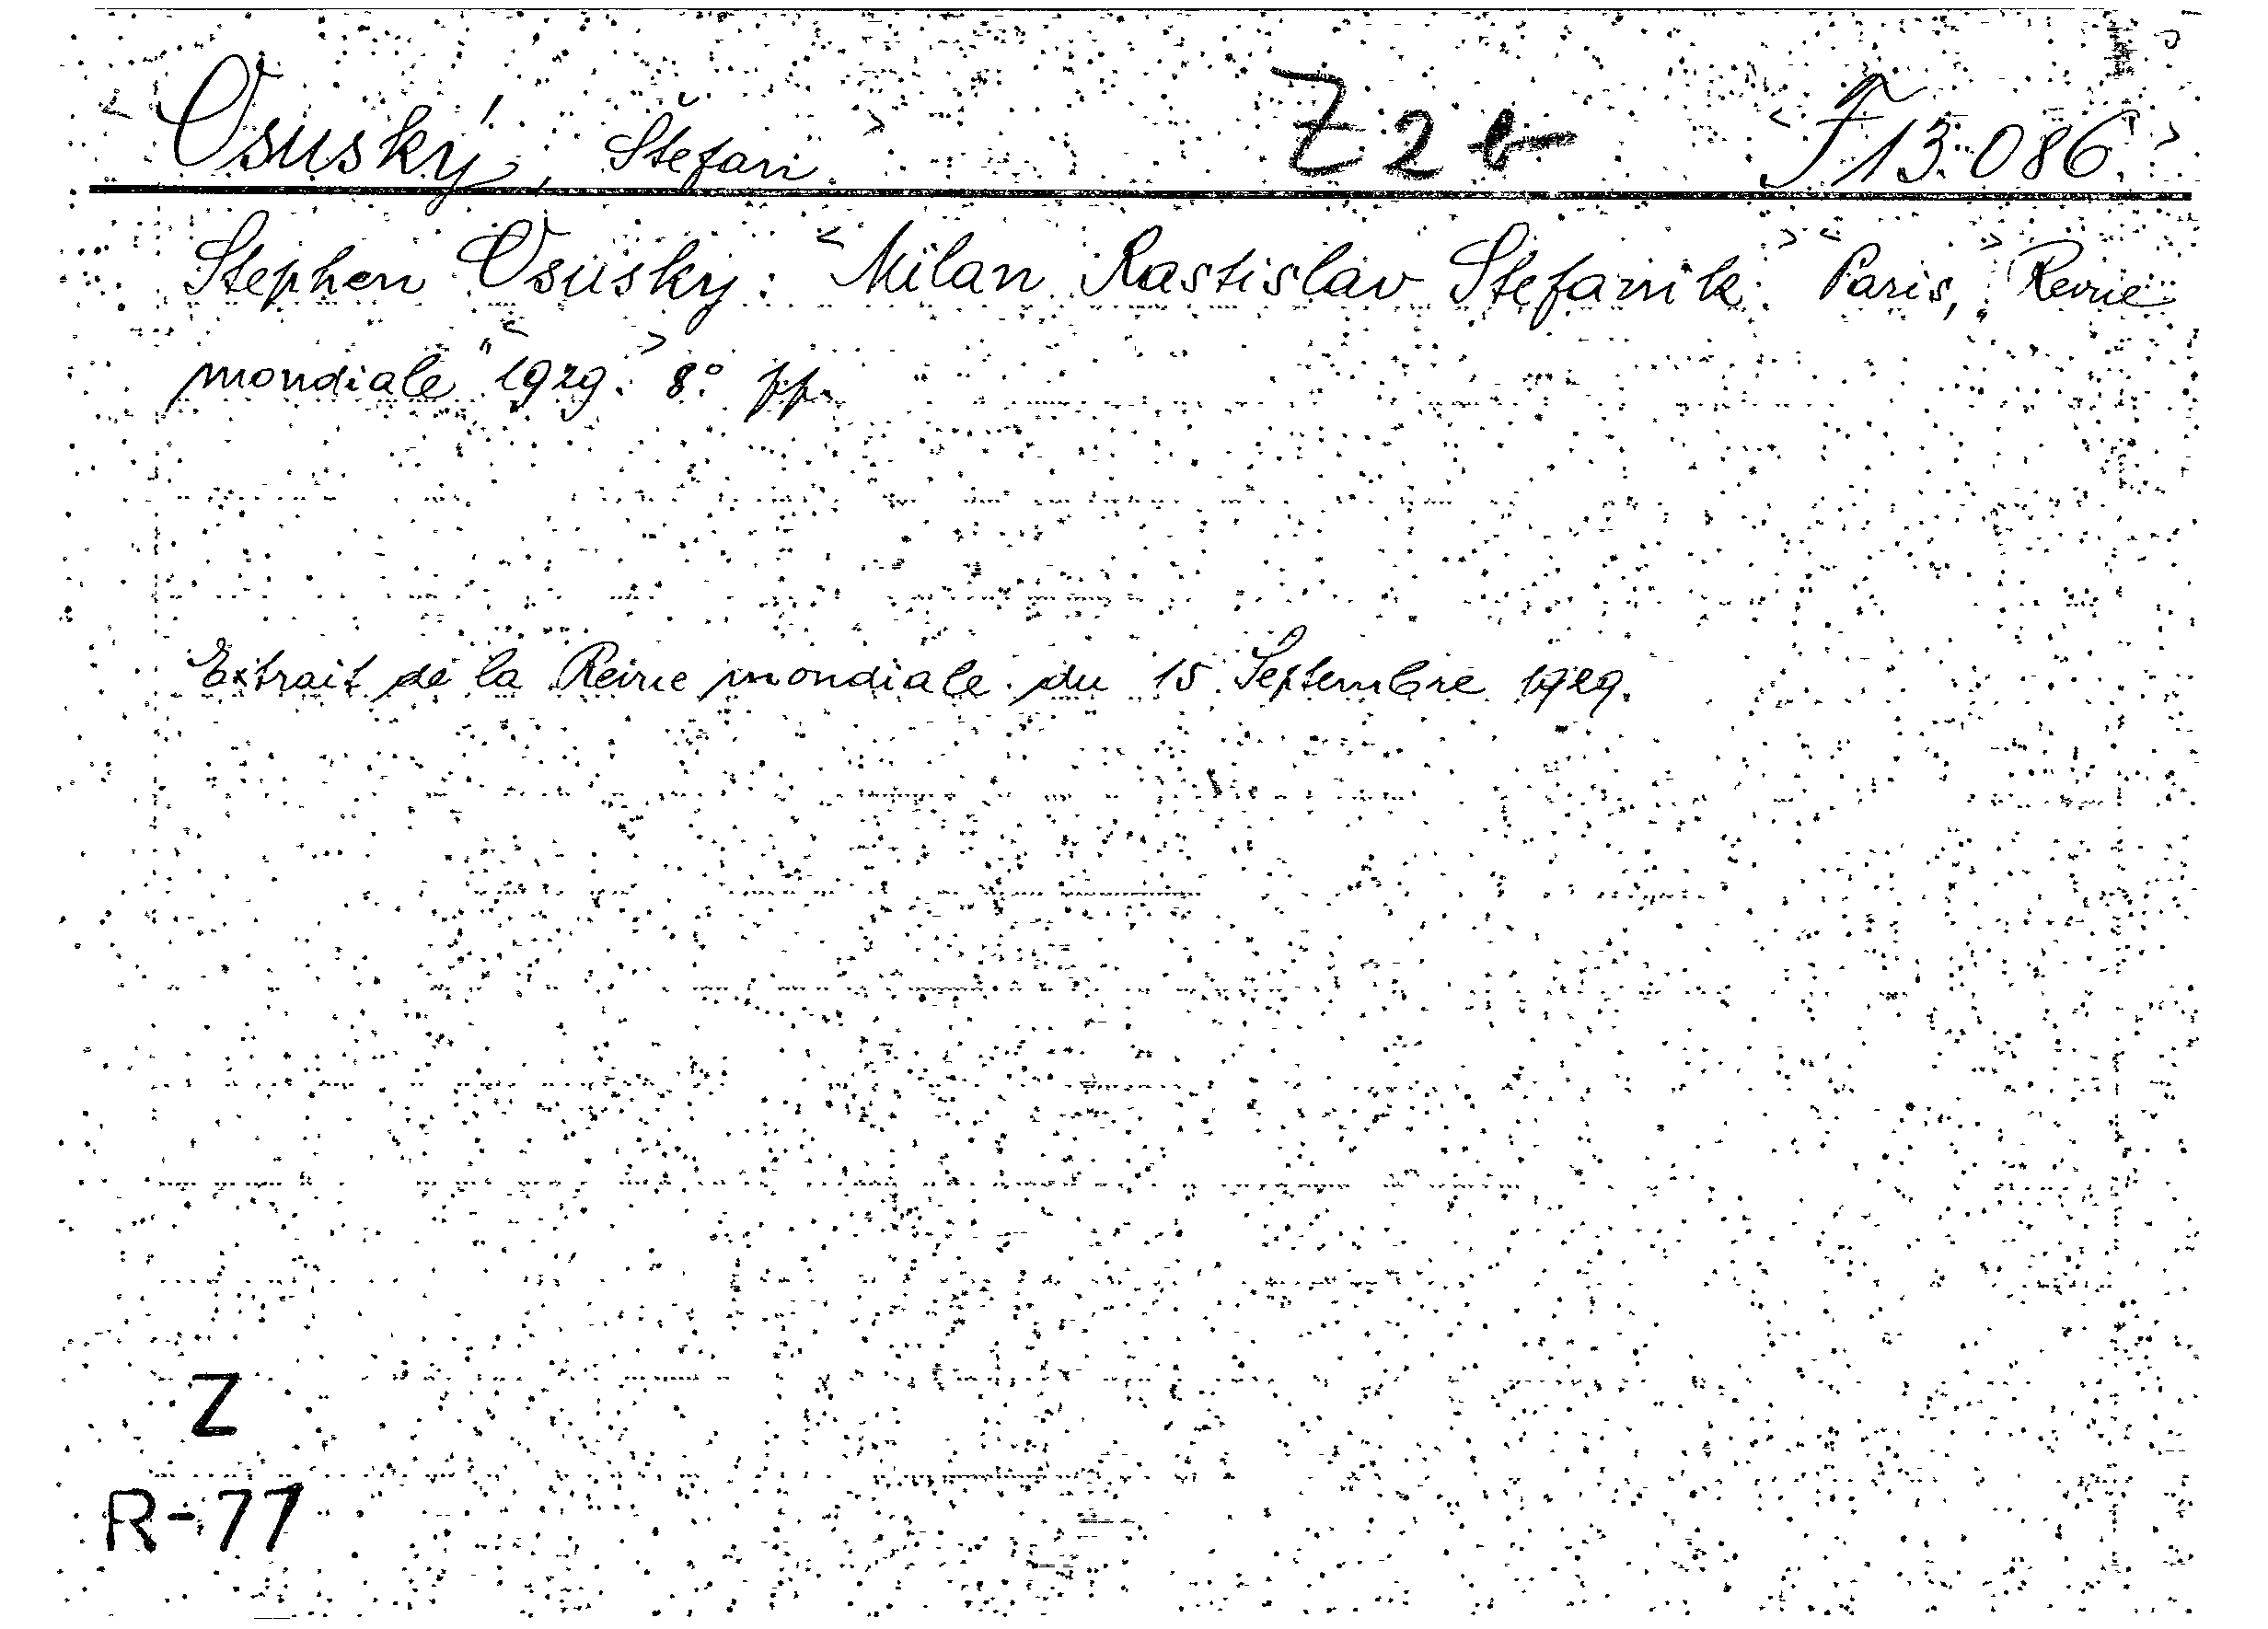 < Osuský, Štefan > Z 2 b < F 13.086. >
Stephen Osuský: < Milan Rastislav Štefanik. > < Paris, > „Revue
mondiale“ < 1929. > 8° pp.
Extrait de la Revue mondiale du 15 Septembre 1929.
Z
R-77